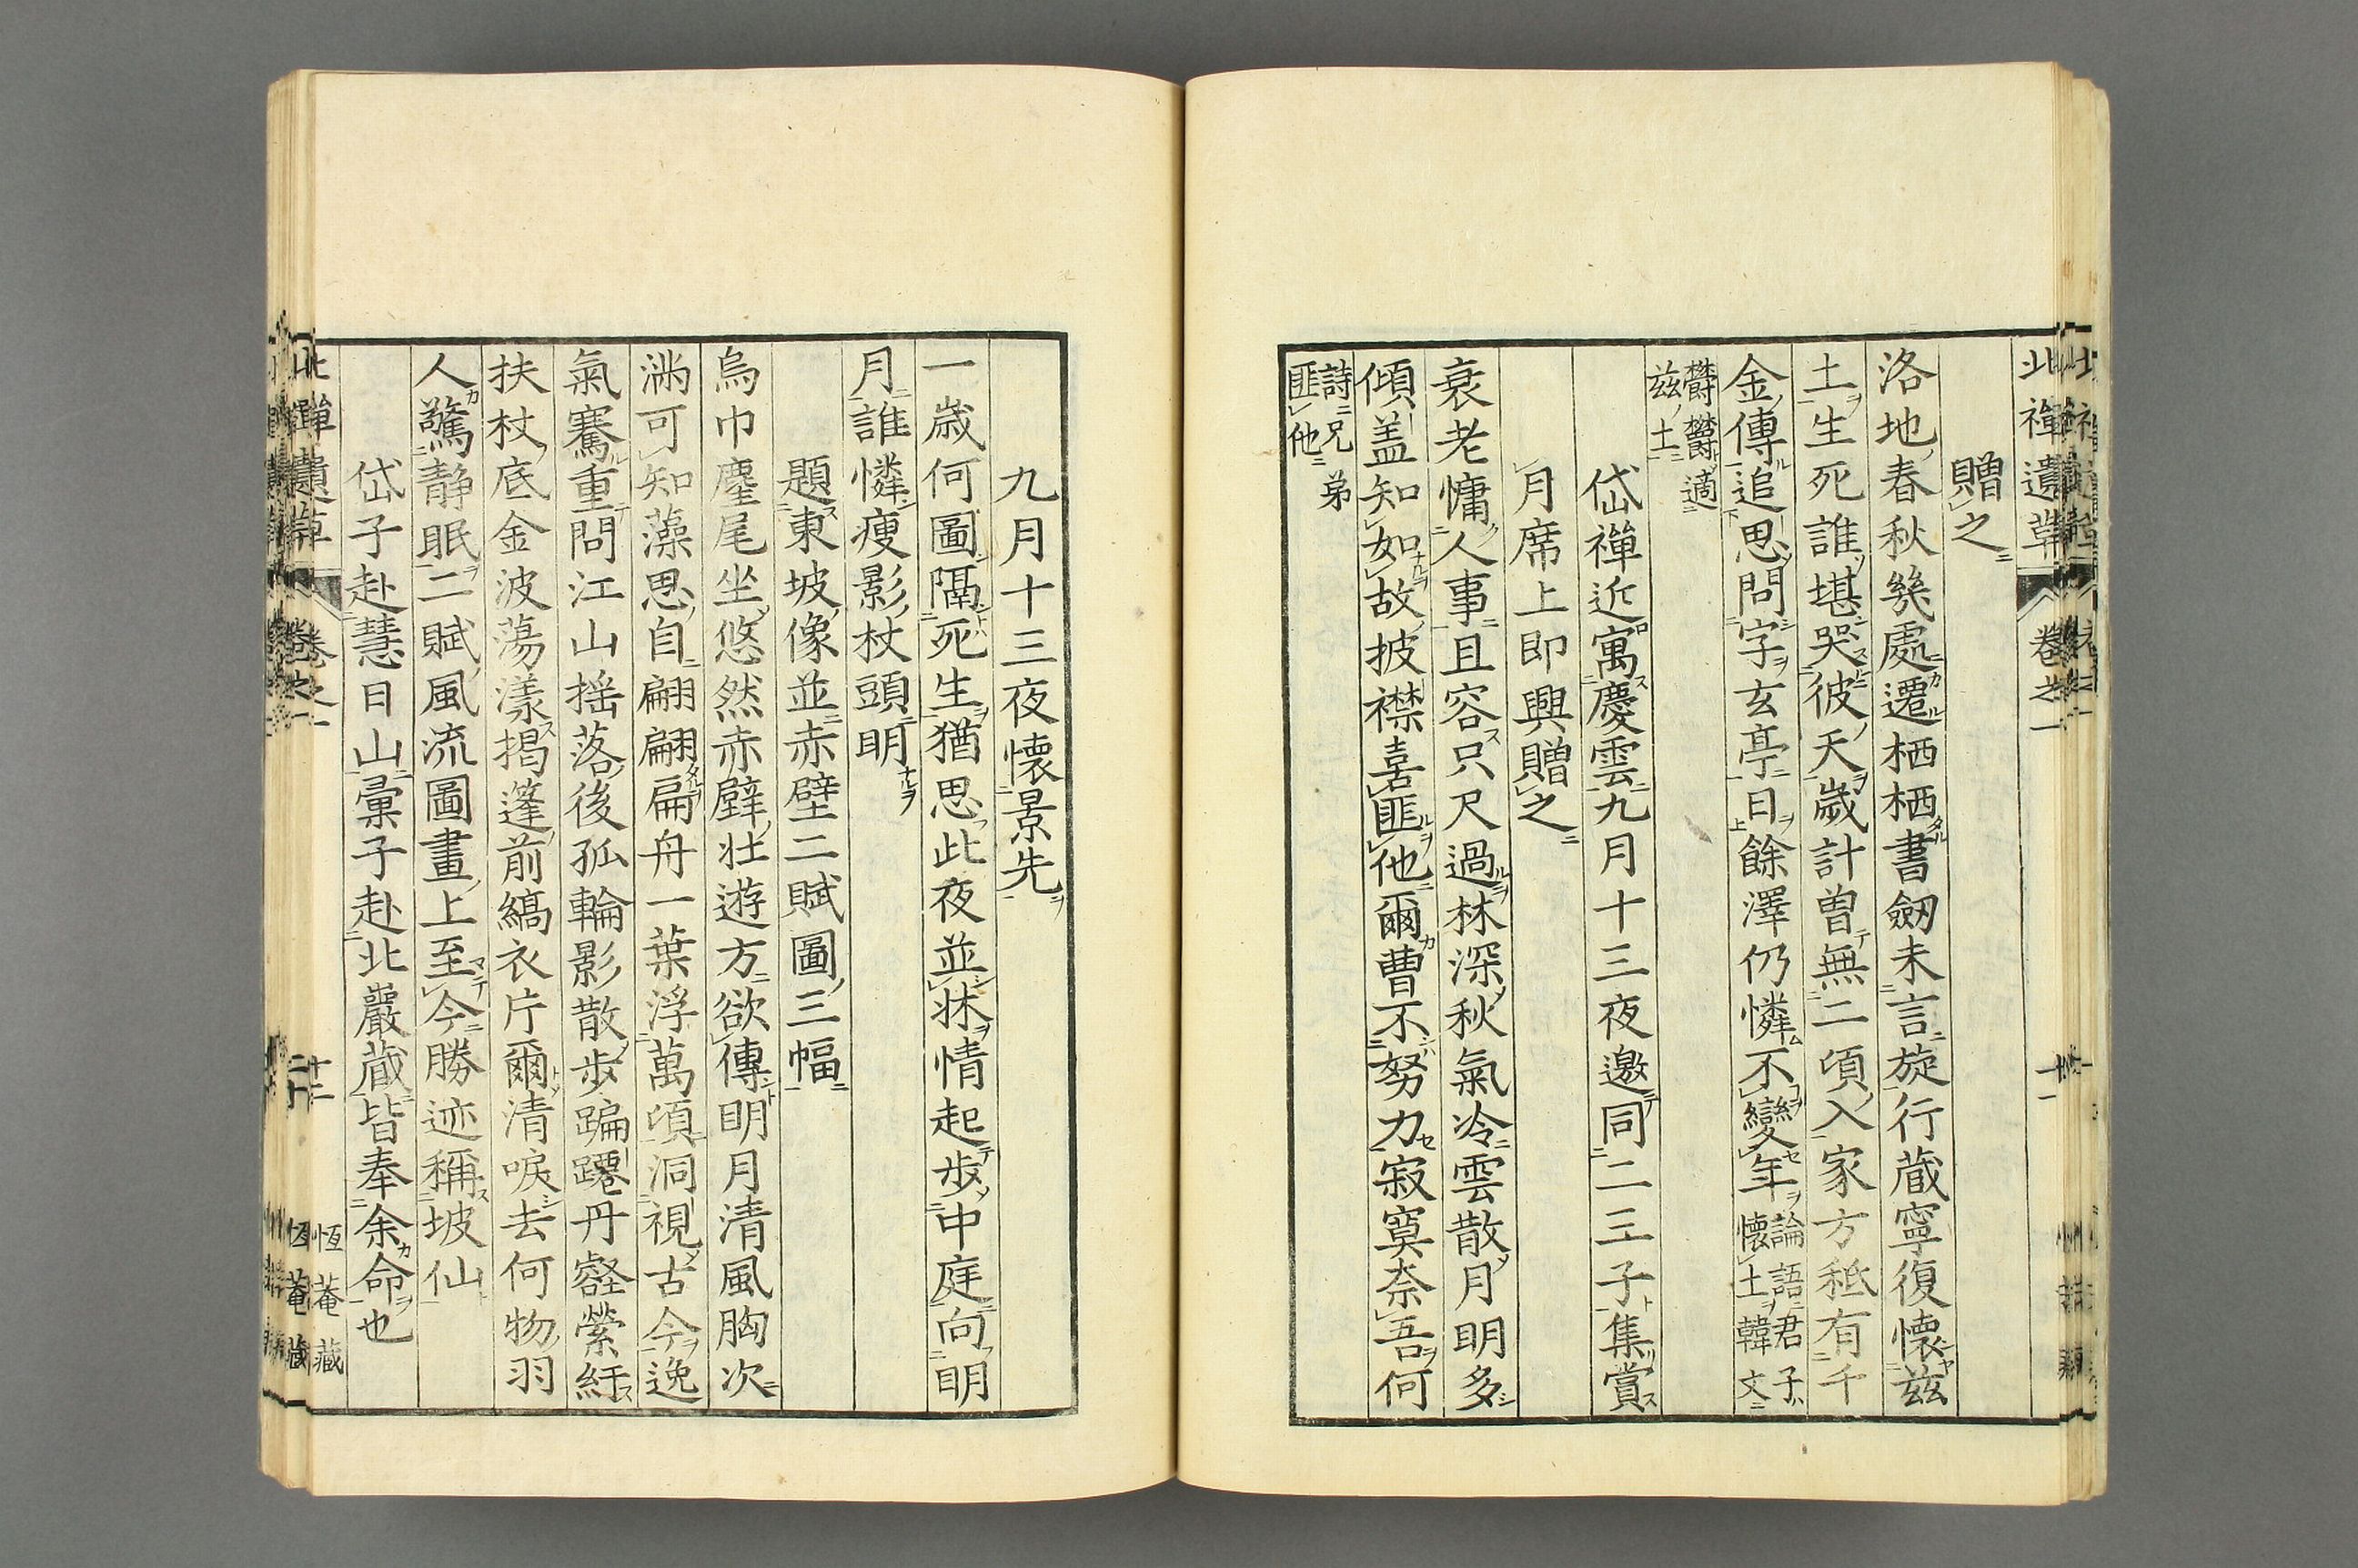 北禪遺草 卷之一
贈之
洛地春秋幾處遷栖栖書劔未言旋行蔵寧復懷茲
土生死誰堪哭彼天歲計曽無二頃入家方秪有千
金傳追思問字玄亭日餘澤仍憐不變年論語君子懷土韓文
欝欝適茲土
岱禪近寓慶雲九月十三夜邀同二三子集賞
月席上即興贈之
衰老慵人事且容只尺過林深秋氣冷雲散月明多
傾盖知如故披襟喜匪他爾曹不努力寂寞奈吾何
詩兄弟匪他
九月十三夜懐景先
一歳何圖隔死生猶思此夜並牀情起歩中庭向明
月誰憐瘦影杖頭明
題東坡像並赤壁二賦圖三幅
烏巾麈尾坐悠然赤壁壮遊方欲傳明月清風胸次
満可知藻思自翩翩扁舟一葉浮萬頃洞視古今逸
氣騫重問江山揺落後孤輪影散歩蹁蹮丹壑縈紆
扶杖底金波蕩漾掲篷前縞衣片爾清唳去何物羽
人驚静眠二賦風流圖畫上至今勝迹稱坡仙
岱子赴慧日山彙子赴北巖蔵皆奉余命也
北禪遺草 卷之一 十二 恆菴藏